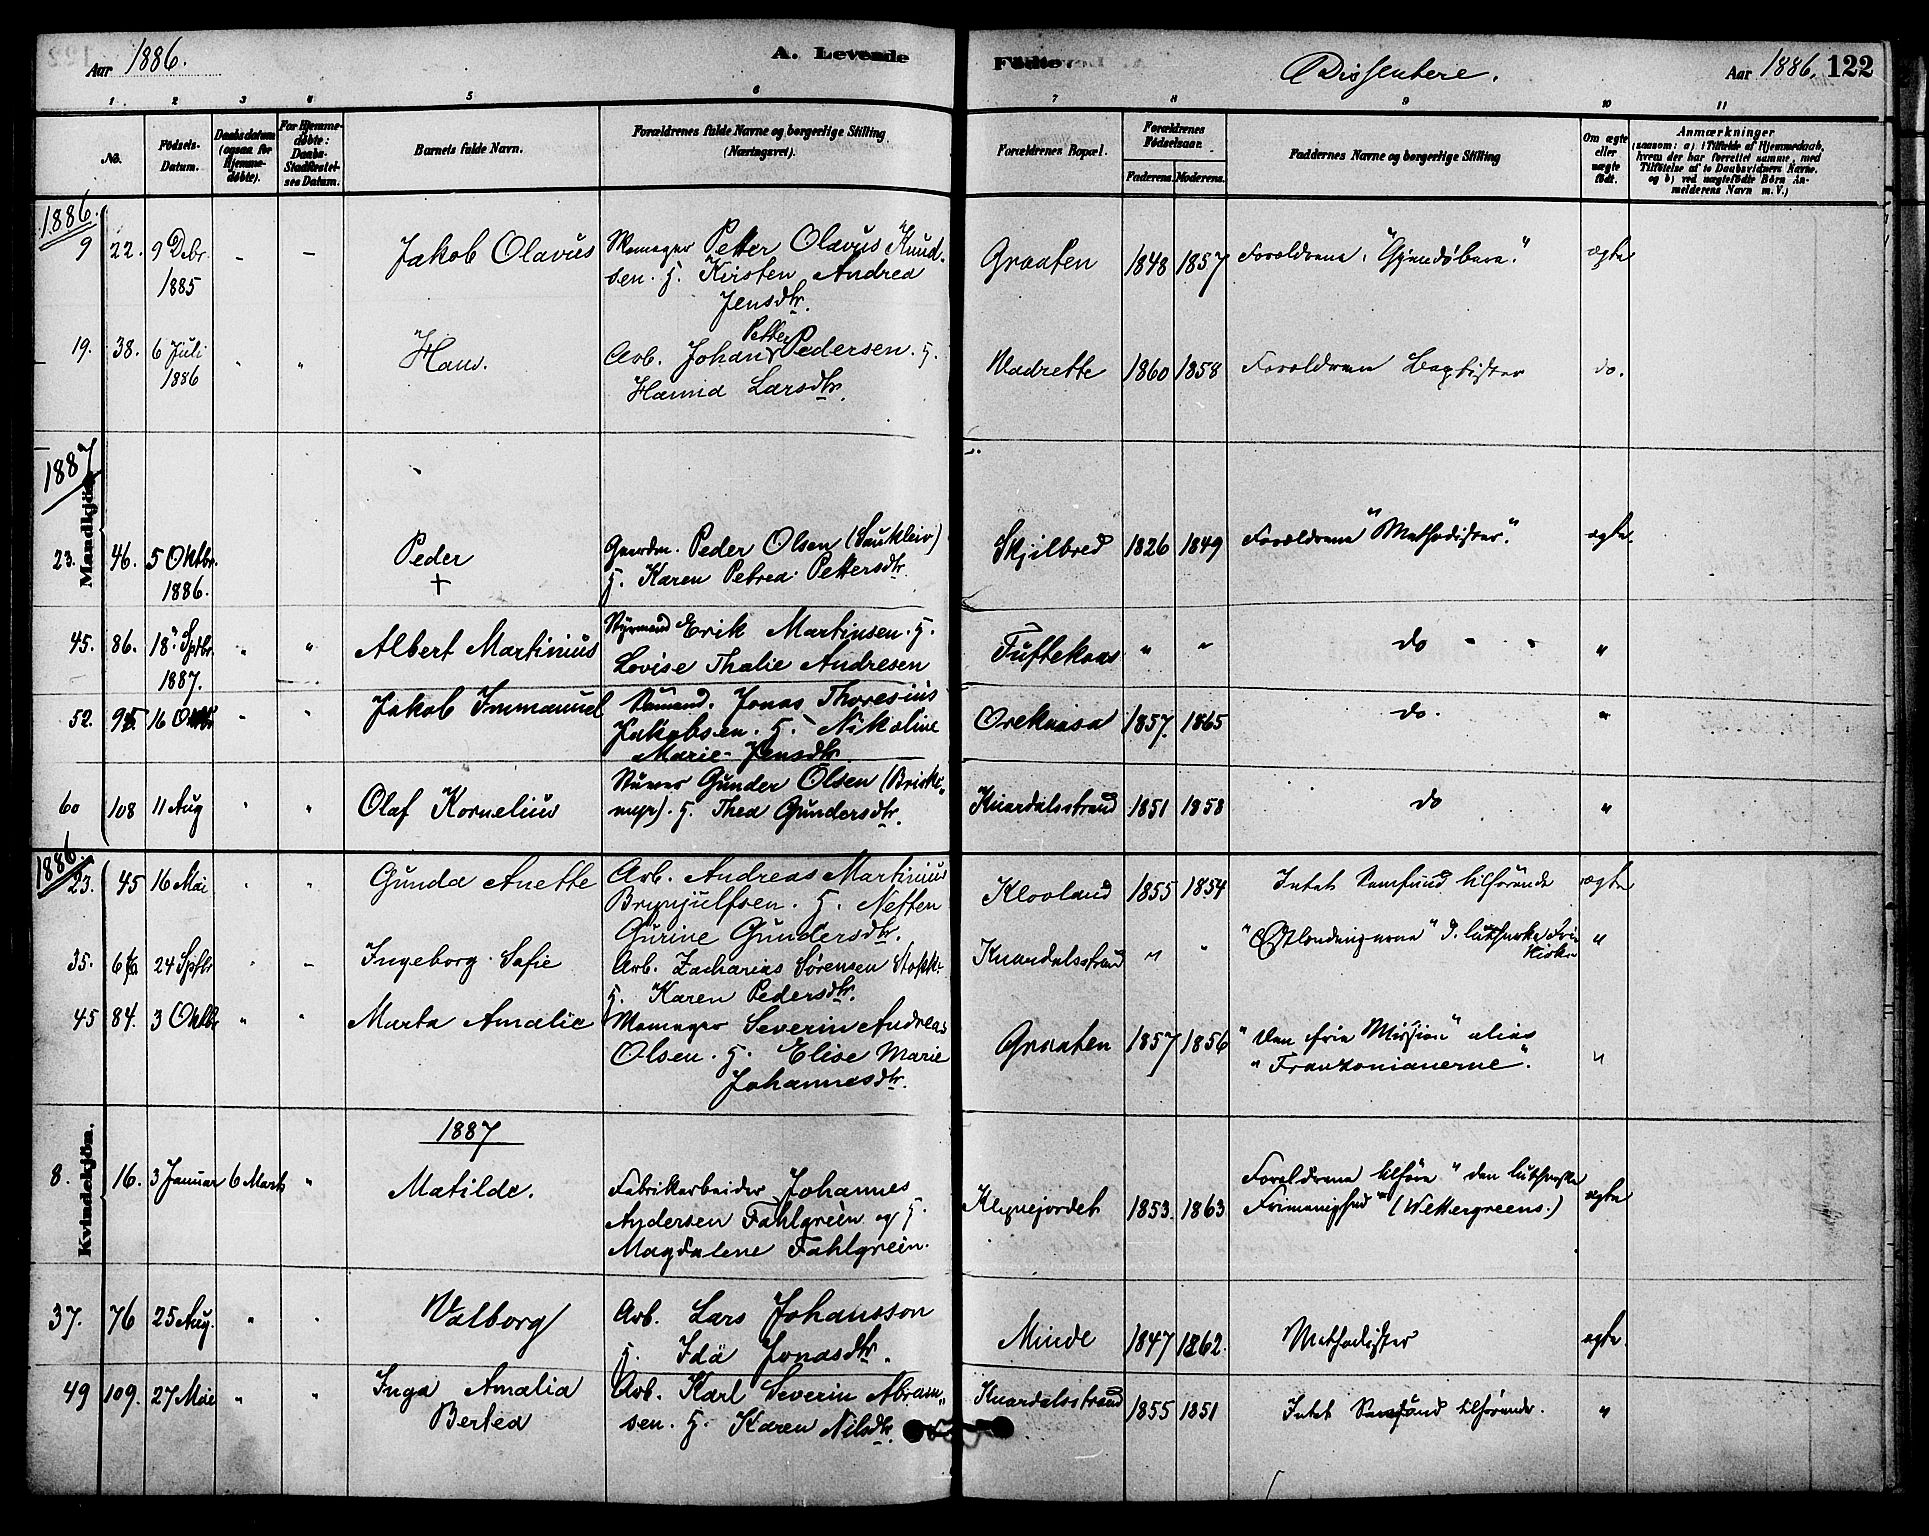 Aar 1886. A. Levende Fødte. Dissentere. Aar 1886. 122
1 2 3 4 5 6 7 8 9 10 11
No.
Fødsels-Datum.
Daabsdatum (ogsaa for Hjemme-døbte).
For Hjemme-døbte: Daabs-Stadfæstel-ses Datum.
Barnets fulde Navn.
Forældrenes fulde Navne og borgerlige Stilling (Næringsvei).
Forældrenes Bopæl.
Forældrenes Fødselsaar.
Faderens. Moderens.
Faddernes Navne og borgerlige Stilling
Om ægte eller uægte født.
Anmærkninger
(saasom: a) i Tilfælde af Hjemmedaab,
hvem der har forrettet samme, med
Tilføielse af to Daabsvidners Navne,
og b) ved uægtefødte Børn An-
melderens Navn m. V.)
1886.
9 22. 9 Debr. 1885 - - Jakob Olavus
Petter Olavus Knud-
sen. H. Kirsten Andrea
Jensdtr.
Graaten 1848 1857 Forældrene "Gjendøbere". ægte
19. 38. 6 Juli 1886 " " Hans.
Arb. Johan Petter Pedersen. H.
Larsdtr.
Vadrette 1860 1858 Forældrene Baptister do.
1887
Mandkjøn.
23. 46. 5 Oktbr. 1886. Peder +
Gaardm. Peder Olsen (Saukleiv)
H. Karen Petrea Pettersdtr.
Skjilbred 1826 1849 Forældrene "Methodister". ægte.
45. 86. 18 Sptbr. 1887. " " Albert Martinius
Styrmand Erik Martinsen. H.
Lovise Thalie Andresen
Tuftekaas " " do " " "
52. 95 16 Oktbr " " Jakob Immanuel
Sømand. Jonas Thoresius
Jakobsen. H. Nikoline
Marie Jensdtr
Orekaasa 1857. 1865 do. "
60 108 11 Aug " " Olaf Kornelius
Gunder Olsen (Briske-
myr). H. Thea Gundersdtr.
Knardalsstrand 1851 1858 do "
1886.
23. 45 16 Mai " " Gunda Anette
Arb. Andreas Martinius
Brynjulfsen. H. Netten
Gurine Gundersdtr.
Klovland 1855 1854 Intet Samfund tilhørende ægte
35. 66 24 Sptbr " - Ingeborg Sofie
Arb. Zacharias Sørensen Stokk-
H. Karen Pedersdtr.
Knardalsstrand " " " D. lutherske Fri-
Kirke "
45 84. 3 Oktbr " " Marta Amalie
Severin Andreas
Olsen. H. Elise Marie
Johannesdtr.
Graaten 1857 1856 "Den frie Mission" alias
"Franzonianerne". "
Kvindekjøn.
1887
8. 16. 3 Januar 6 Marts " Matilde.
Fabrikarbeider Johannes
Andersen Fahlgrein og H.
Magdalene Fahlgrein.
Klynejordet 1853. 1863 Forældrene tilhøre "den lutherske
Frimenighed" (Wettergreens.) ægte
37. 76 25 Aug. " " Valborg
Arb. Lars Johansson
H. Ida Jonasdtr.
Minde 1847 1862. Methodister ægte.
49 109. 27 Mai " " Inga Amalia
Bertea
Arb. Karl Severin Abram-
sen. H. Karen Nilsdtr.
Knardalsstrand 1855 1851 Intet Samfund tilhørende. "